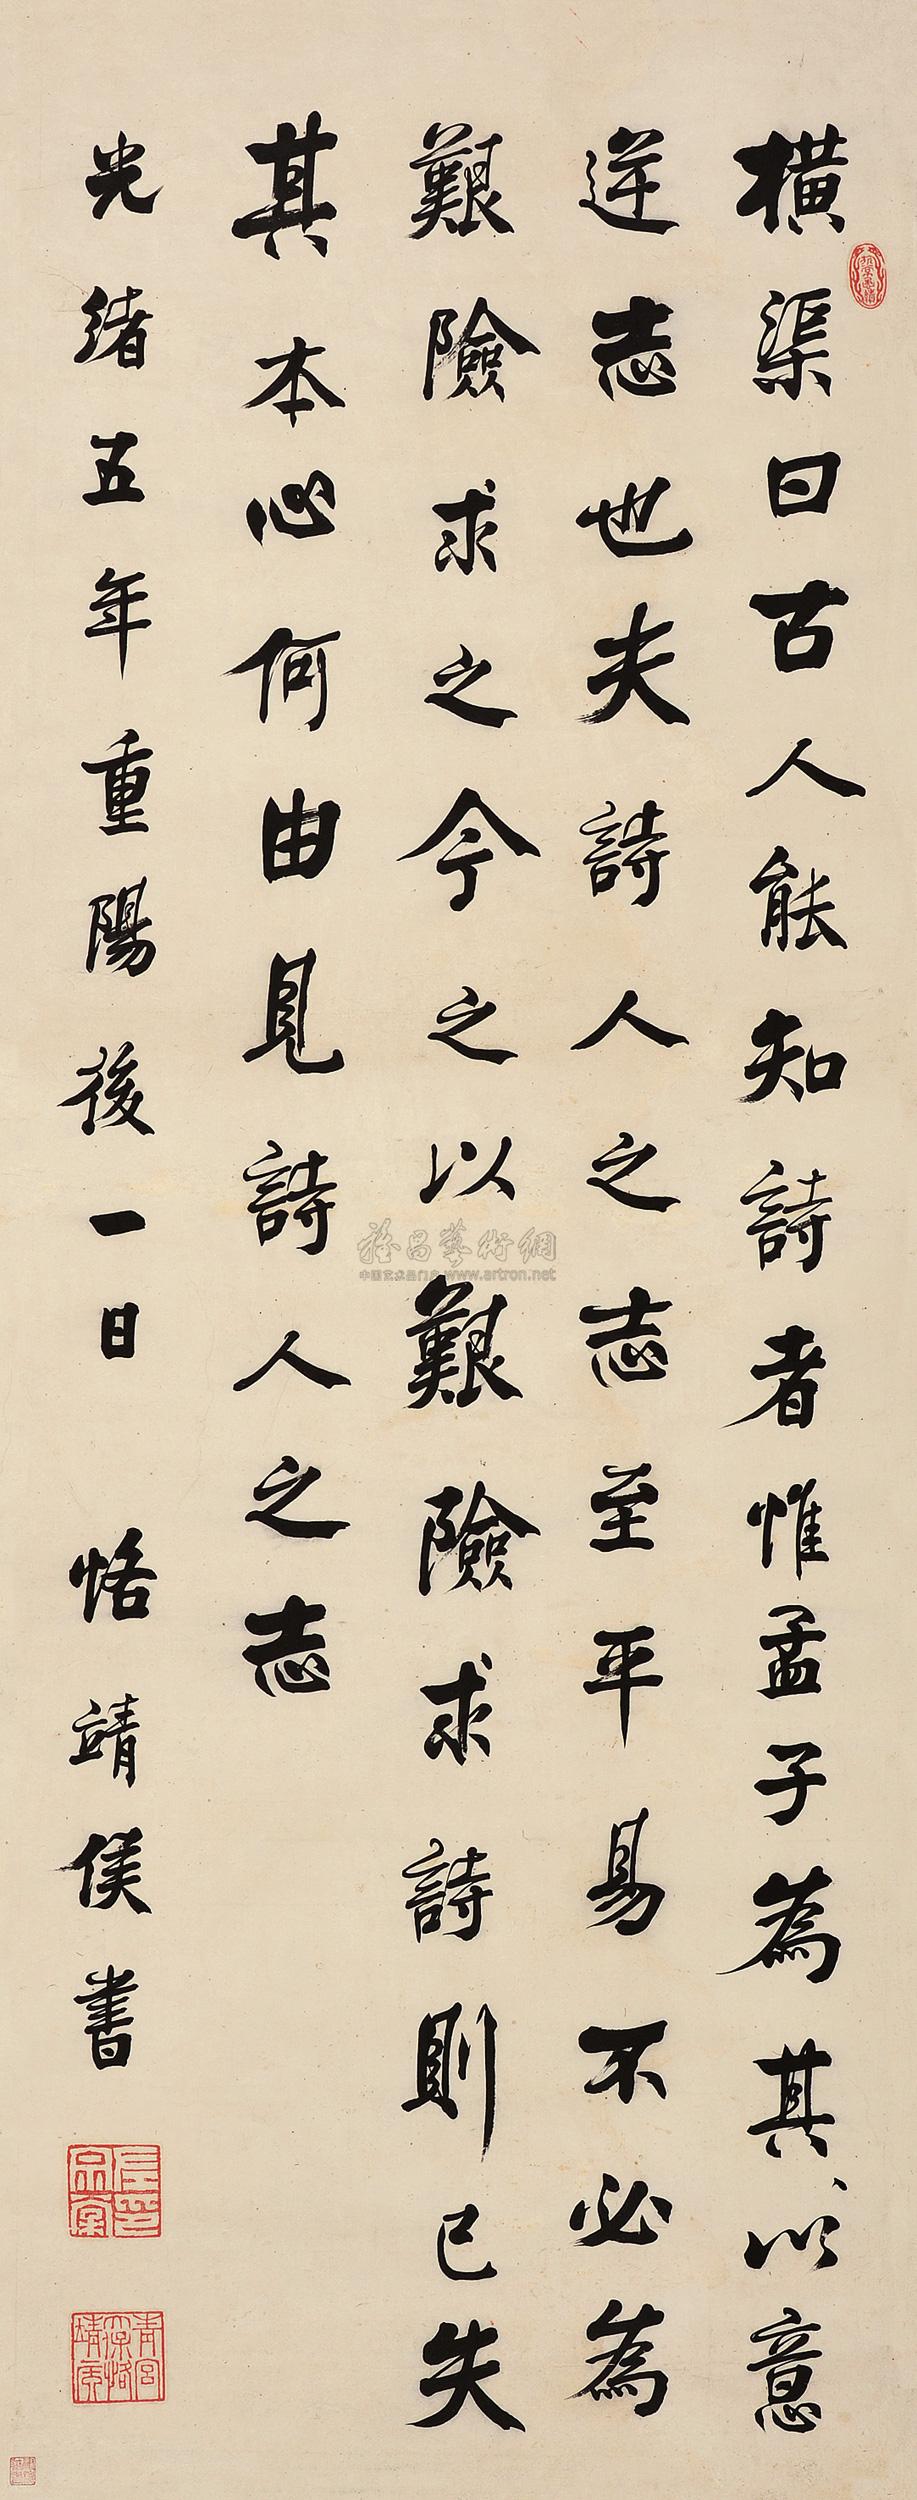 橫渠曰古人能知詩者惟孟子為其以意
逆志也夫詩人之志至平易不必為
艱險求之今之以艱險求詩則已失
其本心何由見詩人之志
光緒五年重陽後一日 恪靖侯書
雅昌藝術網
中国艺术品门户 www.artron.net
青宮太保恪靖侯